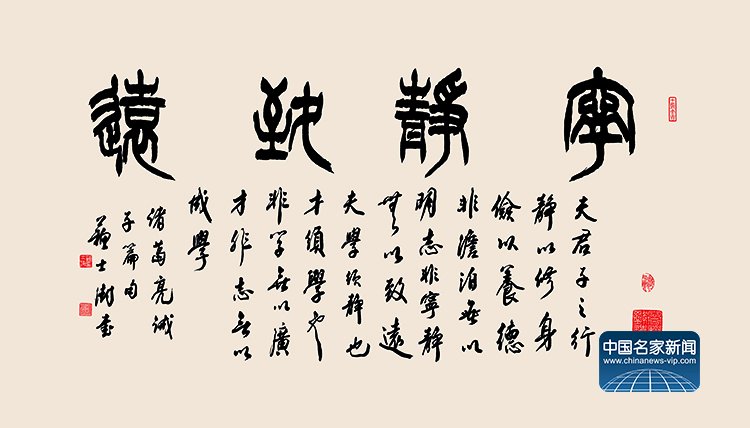 寧靜致遠
夫君子之行
靜以修身
儉以養德
非澹泊無以
明志非寧靜
無以致遠
夫學須靜也
才須學也
非学無以廣
才非志無以
成學
诸葛亮诫
子篇句
蘇士澍書
中国名家新闻
www.chinanews-vip.com